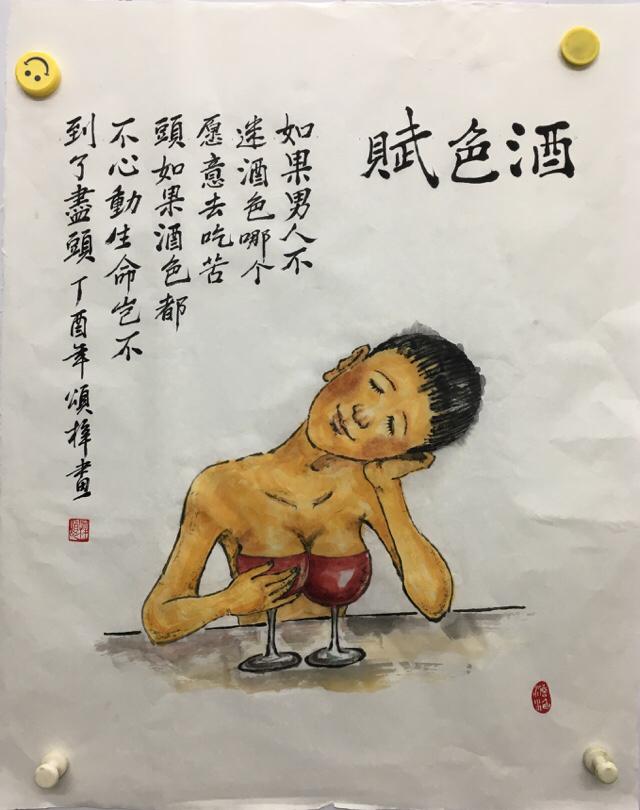 酒色賦
如果男人不
迷酒色哪个
愿意去吃苦
頭如果酒色都
不心動生命岂不
到了盡頭丁酉年頌梓畫